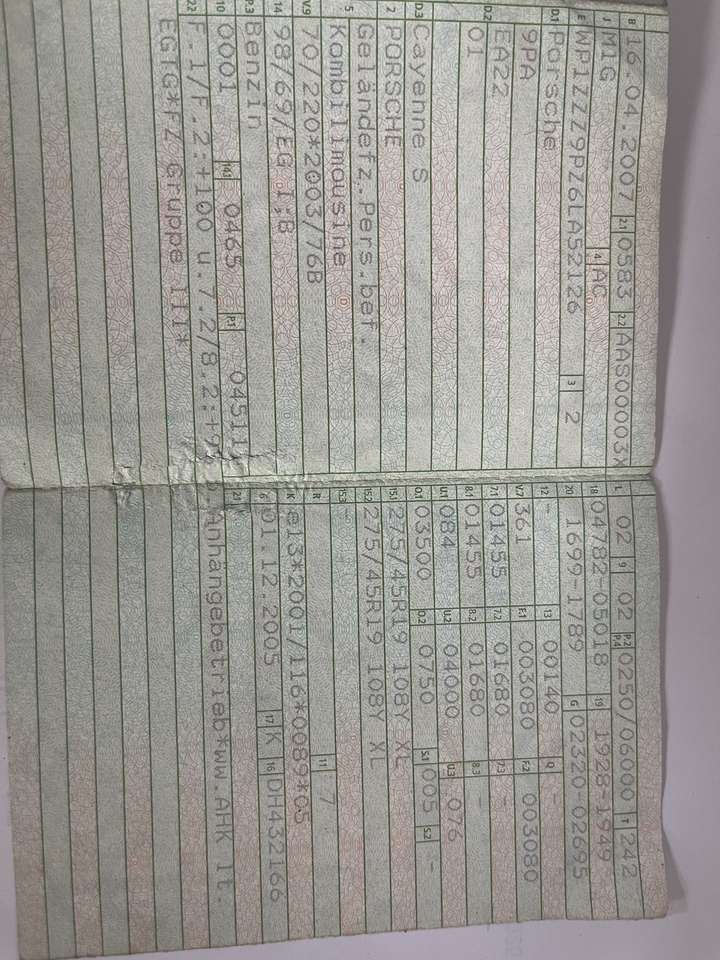 B 16.04.2007 2.1 0583 2.2 AAS00003X
J M1G 4 AC
E WP1ZZZ9PZ6LA52126 3 2
D.1 Porsche
9PA
D.2 EA22
01
D.3 Cayenne S
2 PORSCHE
Geländefz.Pers.bef.
5 Kombilimousine
V.9 70/220*2003/76B
14 98/69/EG I;B
P.3 Benzin
10 0001 14.1 0465 P.1 04511
22 F.1/F.2:+100 u.7.2/8.2:+
EGTG*FZ Gruppe III*
L 02 9 02 P.2 P.4 0250/06000 T 242
18 04782-05018 19 1928-1949
20 1699-1789 G 02320-02695
12 - 13 00140 Q -
V.7 361 F.1 003080 F.2 003080
7.1 01455 7.2 01680 7.3 -
8.1 01455 8.2 01680 8.3 -
U.1 084 U.2 04000 U.3 076
O.1 03500 O.2 0750 S.1 005 S.2 -
15.1 275/45R19 108Y XL
15.2 275/45R19 108Y XL
15.3 -
R 11 7
K e13*2001/116*0089*05
6 01.12.2005 17 K 16 DH432166
21
Anhängebetrieb*ww.AHK lt.